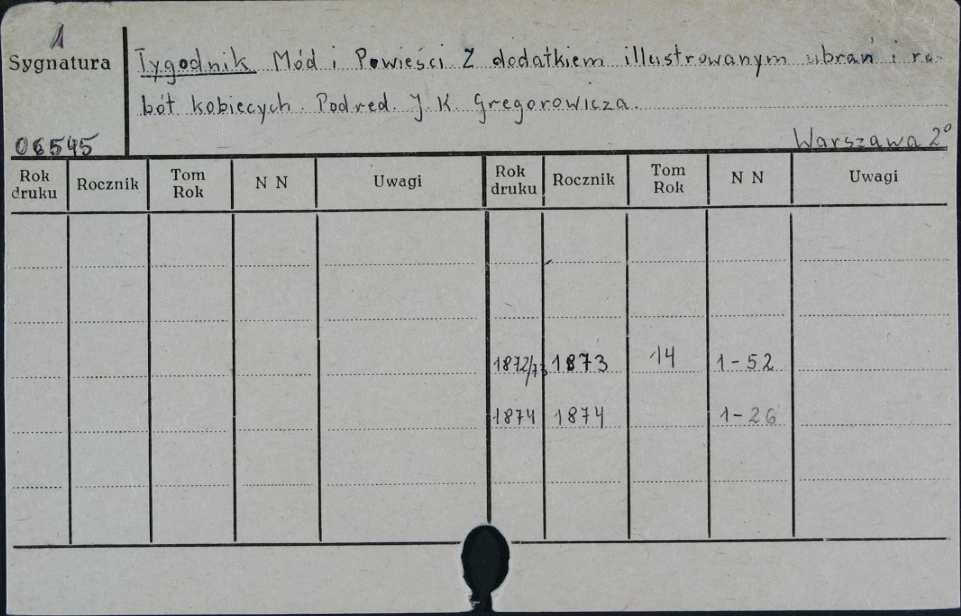 1
Sygnatura
Tygodnik Mód i Powieści Z dodatkiem illustrowanym ubrań i ro-
bót kobiecych. Pod red. J. K Gregorowicza.
06545
Warszawa 2°
Rok druku Rocznik Tom Rok N N Uwagi Rok druku Rocznik Tom Rok N N Uwagi
1872/73 1873 14 1-52
1874 1874 1-26